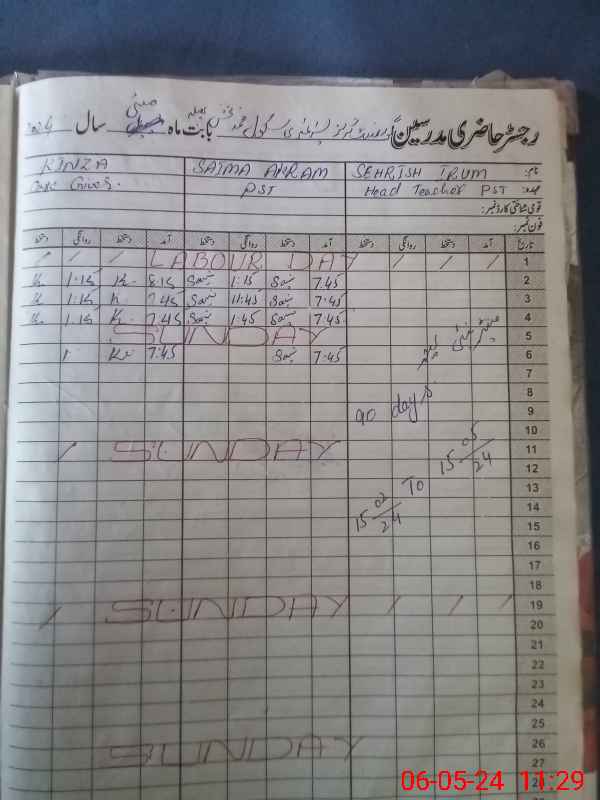 رجسٹر حاضری مدرسین گورنمنٹ گرلز پرائمری سکول بابت ماہ مئی سال 2024
نام: SEHRISH IRUM SAIMA AKRAM KINZA
عہدہ: Head Teacher PST PST Care Giver.
قومی شناختی کارڈ نمبر:
فون نمبر:
تاریخ آمد دستخط روانگی دستخط آمد دستخط روانگی دستخط آمد دستخط روانگی دستخط
1 / / / LABOUR DAY / /
2 7.45 1:15 8:15 K. 1:15 K.
3 7:45 11:45 7:45 K 1:15 K
4 7:45 1:45 7:45 K. 1:15 K.
5 SUNDAY
6 7:45 7:45
میٹرنٹی لیو
7
8
90 days
9
10
11 SUNDAY /
12
15 02/24 To 15 05/24
13
14
15
16
17
18
19 / / / SUNDAY /
20
21
22
23
24
25
26 SUNDAY
27
28
06-05-24 11:29